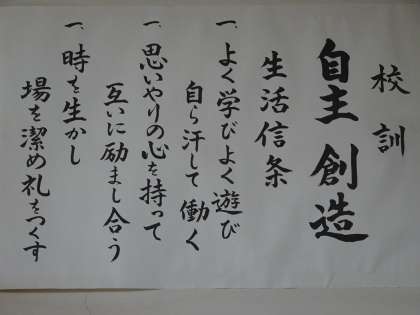 校訓
自主創造
生活信条
一、よく学びよく遊び
自ら汗して働く
一、思いやりの心を持って
互いに励まし合う
一、時を生かし
場を潔め礼をつくす